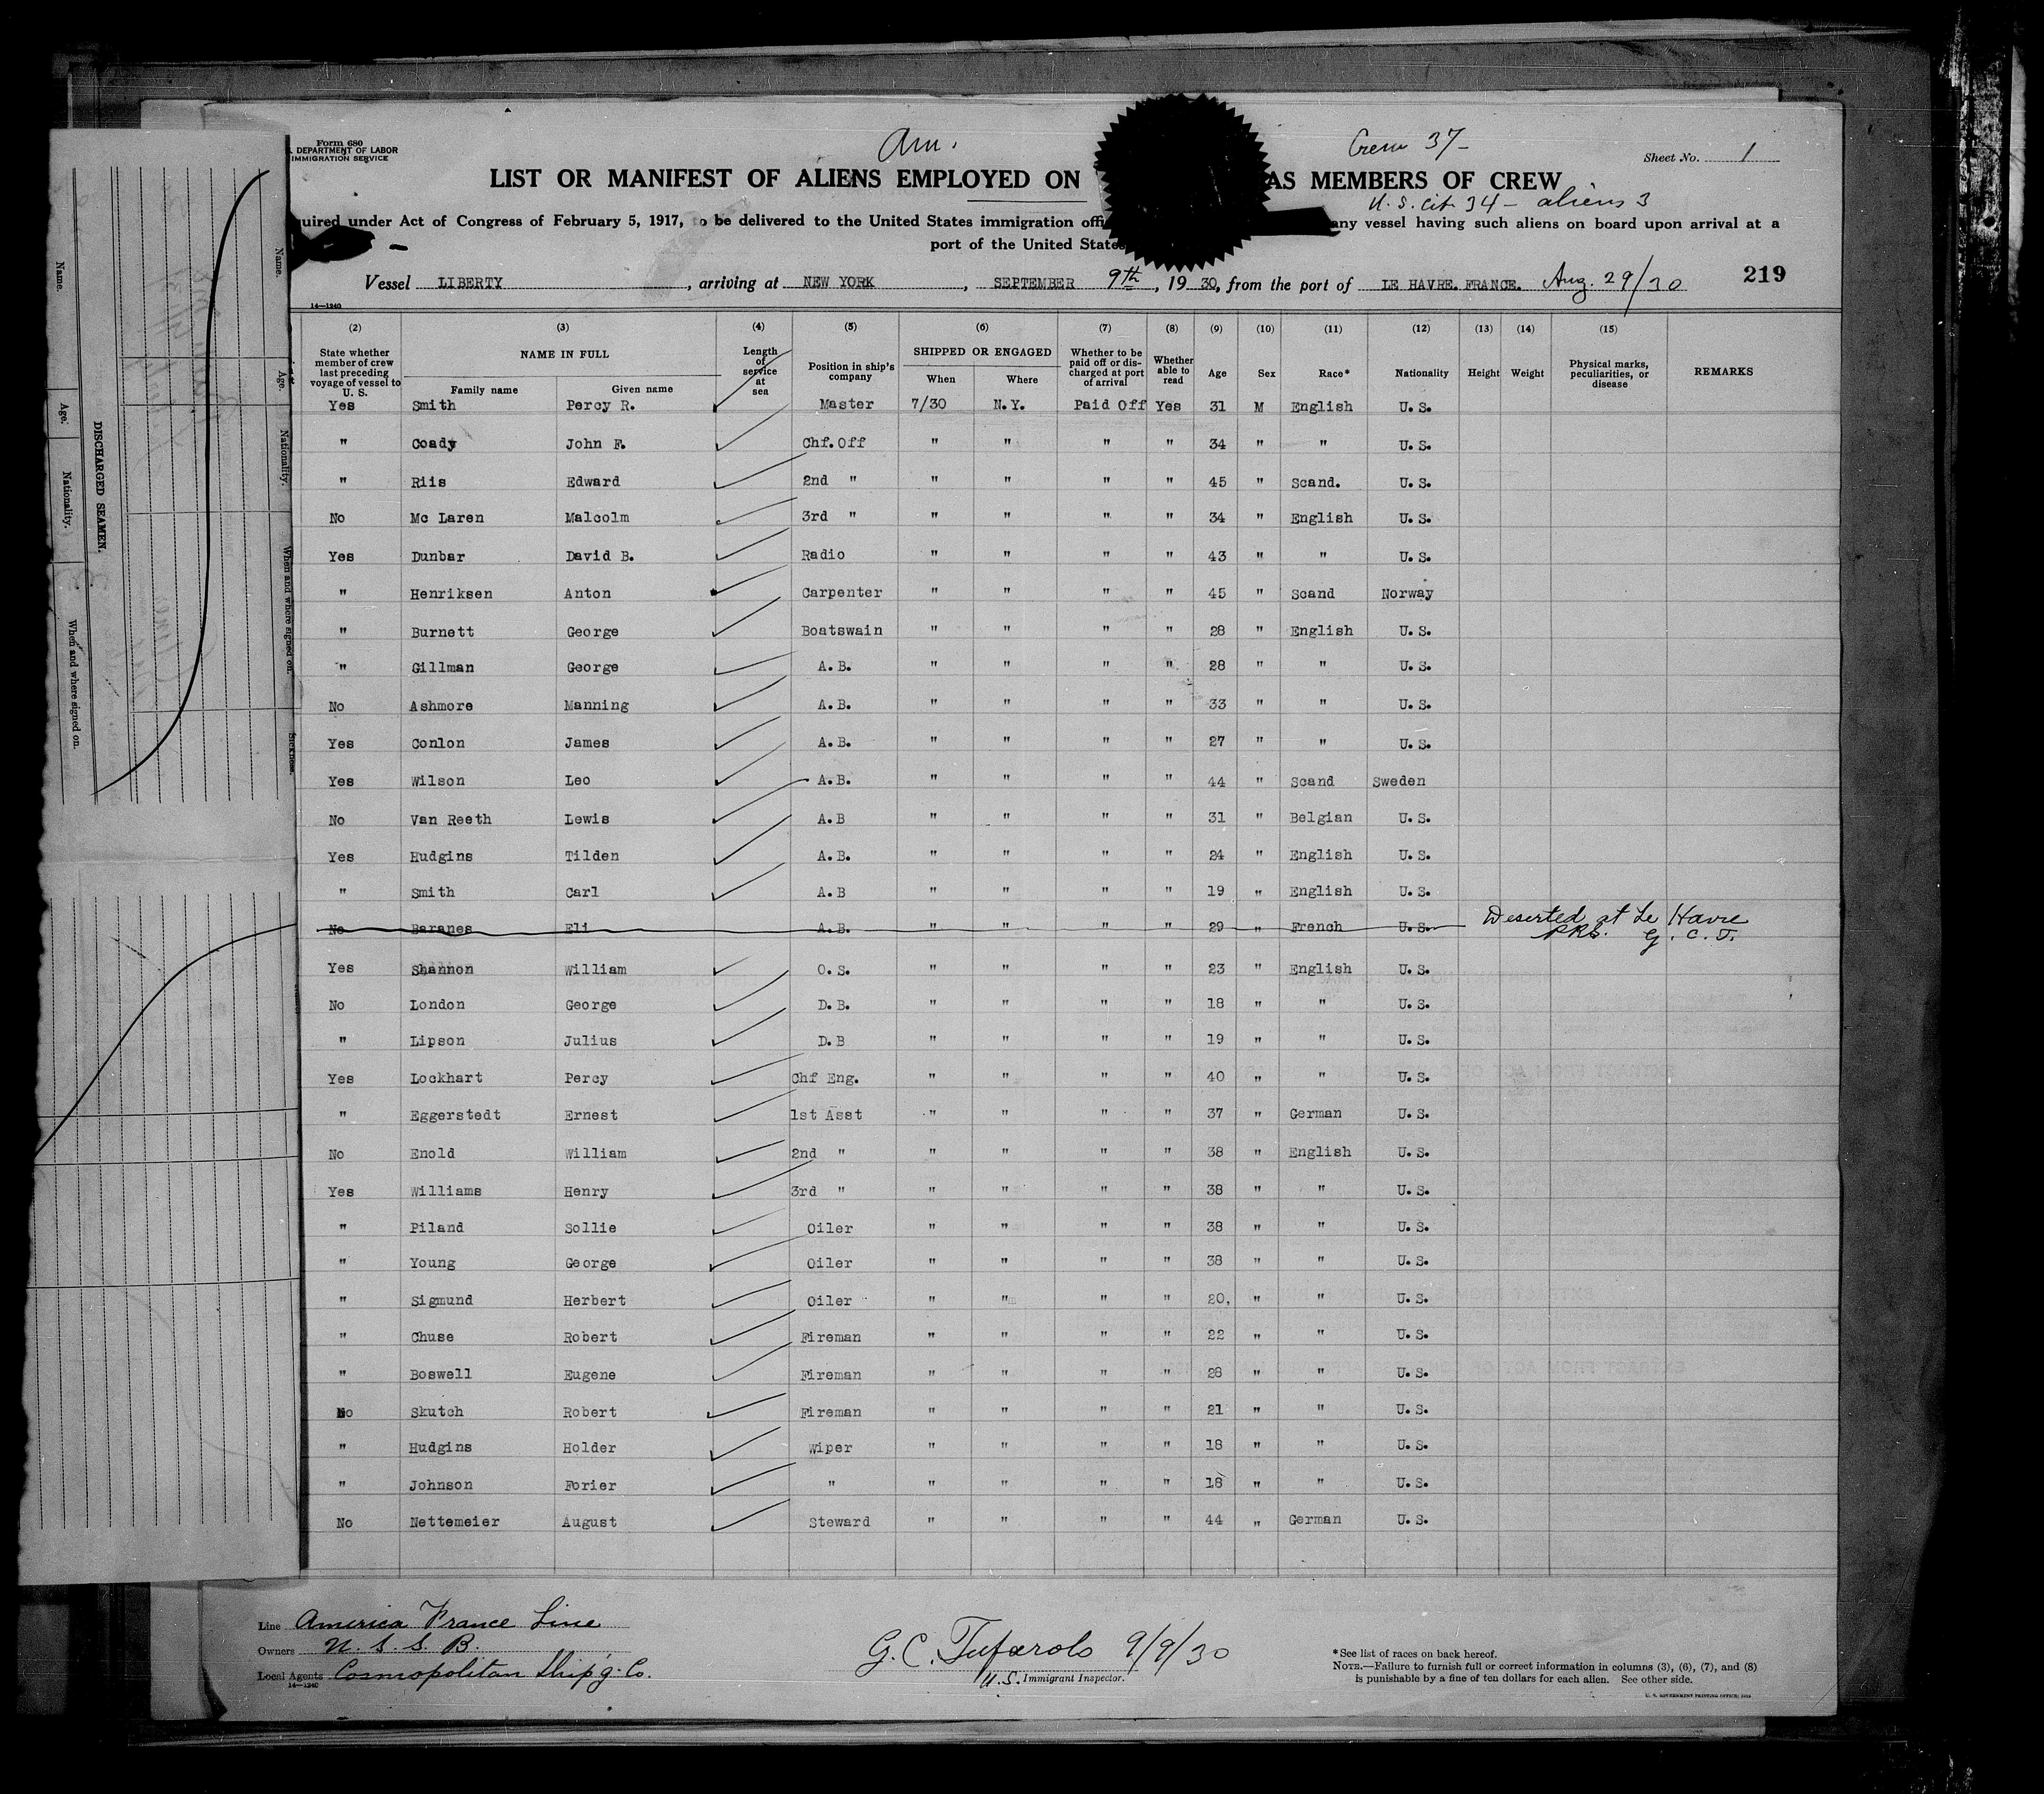 Form 680
DEPARTMENT OF LABOR
IMMIGRATION SERVICE
Am.
Crew 37-
Sheet No. 1
LIST OR MANIFEST OF ALIENS EMPLOYED ON AS MEMBERS OF CREW
U.S. cit. 34 - aliens 3
uired under Act of Congress of February 5, 1917, to be delivered to the United States immigration offi any vessel having such aliens on board upon arrival at a
port of the United States
Vessel LIBERTY, arriving at NEW YORK, SEPTEMBER 9th, 1930, from the port of LE HAVRE. FRANCE. Aug. 29/30 219
14—1240
(2) (3) (4) (5) (6) (7) (8) (9) (10) (11) (12) (13) (14) (15)
State whether member of crew last preceding voyage of vessel to U. S. NAME IN FULL Family name Given name Length of service at sea Position in ship's company SHIPPED OR ENGAGED When Where Whether to be paid off or discharged at port of arrival Whether able to read Age Sex Race* Nationality Height Weight Physical marks, peculiarities, or disease REMARKS
Yes Smith Percy R. Master 7/30 N.Y. Paid Off Yes 31 M English U.S.
" Coady John F. Chf.Off " " " " 34 " " U.S.
" Riis Edward 2nd " " " " " 45 " Scand. U.S.
No Mc Laren Malcolm 3rd " " " " " 34 " English U.S.
Yes Dunbar David B. Radio " " " " 43 " " U.S.
" Henriksen Anton Carpenter " " " " 45 " Scand Norway
" Burnett George Boatswain " " " " 28 " English U.S.
" Gillman George A.B. " " " " 28 " " U.S.
No Ashmore Manning A.B. " " " " 33 " " U.S.
Yes Conlon James A.B. " " " " 27 " " U.S.
Yes Wilson Leo A.B. " " " " 44 " Scand Sweden
No Van Reeth Lewis A.B " " " " 31 " Belgian U.S.
Yes Hudgins Tilden A.B. " " " " 24 " English U.S.
" Smith Carl A.B " " " " 19 " English U.S.
No Baranes Eli A.B. " " " " 29 " French U.S. Deserted at Le Havre
PRS. G.C.T.
Yes Shannon William O.S. " " " " 23 " English U.S.
No London George D.B. " " " " 18 " " U.S.
" Lipson Julius D.B " " " " 19 " " U.S.
Yes Lockhart Percy Chf Eng. " " " " 40 " " U.S.
" Eggerstedt Ernest 1st Asst " " " " 37 " German U.S.
No Enold William 2nd " " " " " 38 " English U.S.
Yes Williams Henry 3rd " " " " " 38 " " U.S.
" Piland Sollie Oiler " " " " 38 " " U.S.
" Young George Oiler " " " " 38 " " U.S.
" Sigmund Herbert Oiler " " " " 20, " " U.S.
" Chuse Robert Fireman " " " " 22 " " U.S.
" Boswell Eugene Fireman " " " " 28 " " U.S.
No Skutch Robert Fireman " " " " 21 " " U.S.
" Hudgins Holder Wiper " " " " 18 " " U.S.
" Johnson Forier " " " " " 18 " " U.S.
No Nettemeier August Steward " " " " 44 " German U.S.
Line America France Line
Owners U.S.S.B.
Local Agents Cosmopolitan Ship'g. Co.
14—1240
G.C. Tufarolo 9/9/30
U.S. Immigrant Inspector.
*See list of races on back hereof.
NOTE.—Failure to furnish full or correct information in columns (3), (6), (7), and (8)
is punishable by a fine of ten dollars for each alien. See other side.
U. S. GOVERNMENT PRINTING OFFICE
DISCHARGED SEAMEN.
Name. Age. Nationality. When and where signed on.
Name. Age. Nationality. When and where signed on. Sickness.